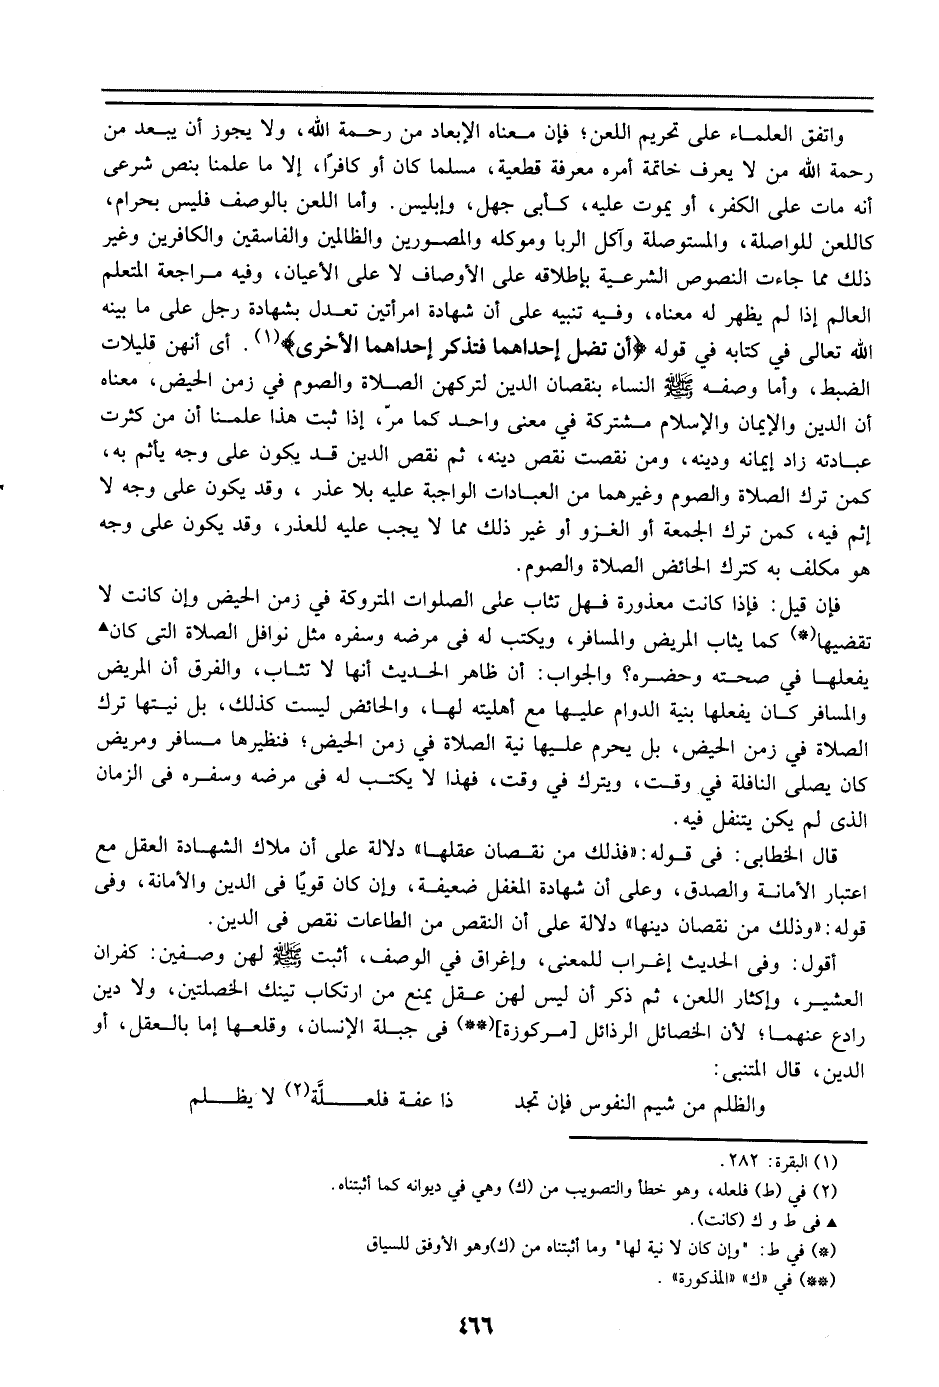 واتفق العلماء على تحريم اللعن؛ فإن معناه الإبعاد من رحمة الله، ولا يجوز أن يبعد من
رحمة الله من لا يعرف خاتمة أمره معرفة قطعية، مسلما كان أو كافرًا، إلا ما علمنا بنص شرعى
أنه مات على الكفر، أو يموت عليه، كأبى جهل، وإبليس. وأما اللعن بالوصف فليس بحرام،
كاللعن للواصلة، والمستوصلة وآكل الربا وموكله والمصورين والظالمين والفاسقين والكافرين وغير
ذلك مما جاءت النصوص الشرعية بإطلاقه على الأوصاف لا على الأعيان، وفيه مراجعة المتعلم
العالم إذا لم يظهر له معناه، وفيه تنبيه على أن شهادة امرأتين تعدل بشهادة رجل على ما بينه
الله تعالى في كتابه في قوله ﴿أن تضل إحداهما فتذكر إحداهما الأخرى﴾(١). أى أنهن قليلات
الضبط، وأما وصفه ﷺ النساء بنقصان الدين لتركهن الصلاة والصوم في زمن الحيض، معناه
أن الدين والإيمان والإسلام مشتركة في معنى واحد كما مرّ، إذا ثبت هذا علمنا أن من كثرت
عبادته زاد إيمانه ودينه، ومن نقصت نقص دينه، ثم نقص الدين قد يكون على وجه يأثم به،
كمن ترك الصلاة والصوم وغيرهما من العبادات الواجبة عليه بلا عذر، وقد يكون على وجه لا
إثم فيه، كمن ترك الجمعة أو الغزو أو غير ذلك مما لا يجب عليه للعذر، وقد يكون على وجه
هو مكلف به كترك الحائض الصلاة والصوم.
فإن قيل: فإذا كانت معذورة فهل تثاب على الصلوات المتروكة في زمن الحيض وإن كانت لا
تقضيها(*) كما يثاب المريض والمسافر، ويكتب له فى مرضه وسفره مثل نوافل الصلاة التى كان▲
يفعلها في صحته وحضره؟ والجواب: أن ظاهر الحديث أنها لا تثاب، والفرق أن المريض
والمسافر كان يفعلها بنية الدوام عليها مع أهليته لها، والحائض ليست كذلك، بل نيتها ترك
الصلاة في زمن الحيض، بل يحرم عليها نية الصلاة في زمن الحيض؛ فنظيرها مسافر ومريض
كان يصلى النافلة في وقت، ويترك في وقت، فهذا لا يكتب له فى مرضه وسفره فى الزمان
الذى لم يكن يتنفل فيه.
قال الخطابى: فى قوله: «فذلك من نقصان عقلها» دلالة على أن ملاك الشهادة العقل مع
اعتبار الأمانة والصدق، وعلى أن شهادة المغفل ضعيفة، وإن كان قويًا فى الدين والأمانة، وفى
قوله: «وذلك من نقصان دينها» دلالة على أن النقص من الطاعات نقص فى الدين.
أقول: وفى الحديث إغراب للمعنى، وإغراق في الوصف، أثبت ﷺ لهن وصفين: كفران
العشير، وإكثار اللعن، ثم ذكر أن ليس لهن عقل يمنع من ارتكاب تينك الخصلتين، ولا دين
رادع عنهما؛ لأن الخصائل الرذائل [مركوزة](**) فى جبلة الإنسان، وقلعها إما بالعقل، أو
الدين، قال المتنبى:
والظلم من شيم النفوس فإن تجد ذا عفة فلعلَّة(٢) لا يظلم
(١) البقرة: ٢٨٢.
(٢) في (ط) فلعله، وهو خطأ والتصويب من (ك) وهي في ديوانه كما أثبتناه.
▲ فى ط و ك (كانت).
(*) في ط: "وإن كان لا نية لها" وما أثبتناه من (ك)وهو الأوفق للسياق
(**) في «ك» «المذكورة».
٤٦٦